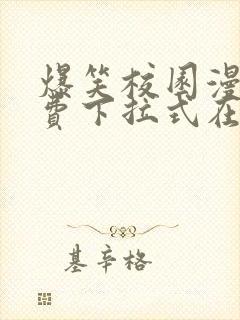 爆笑校园漫
费下拉式在
基辛格